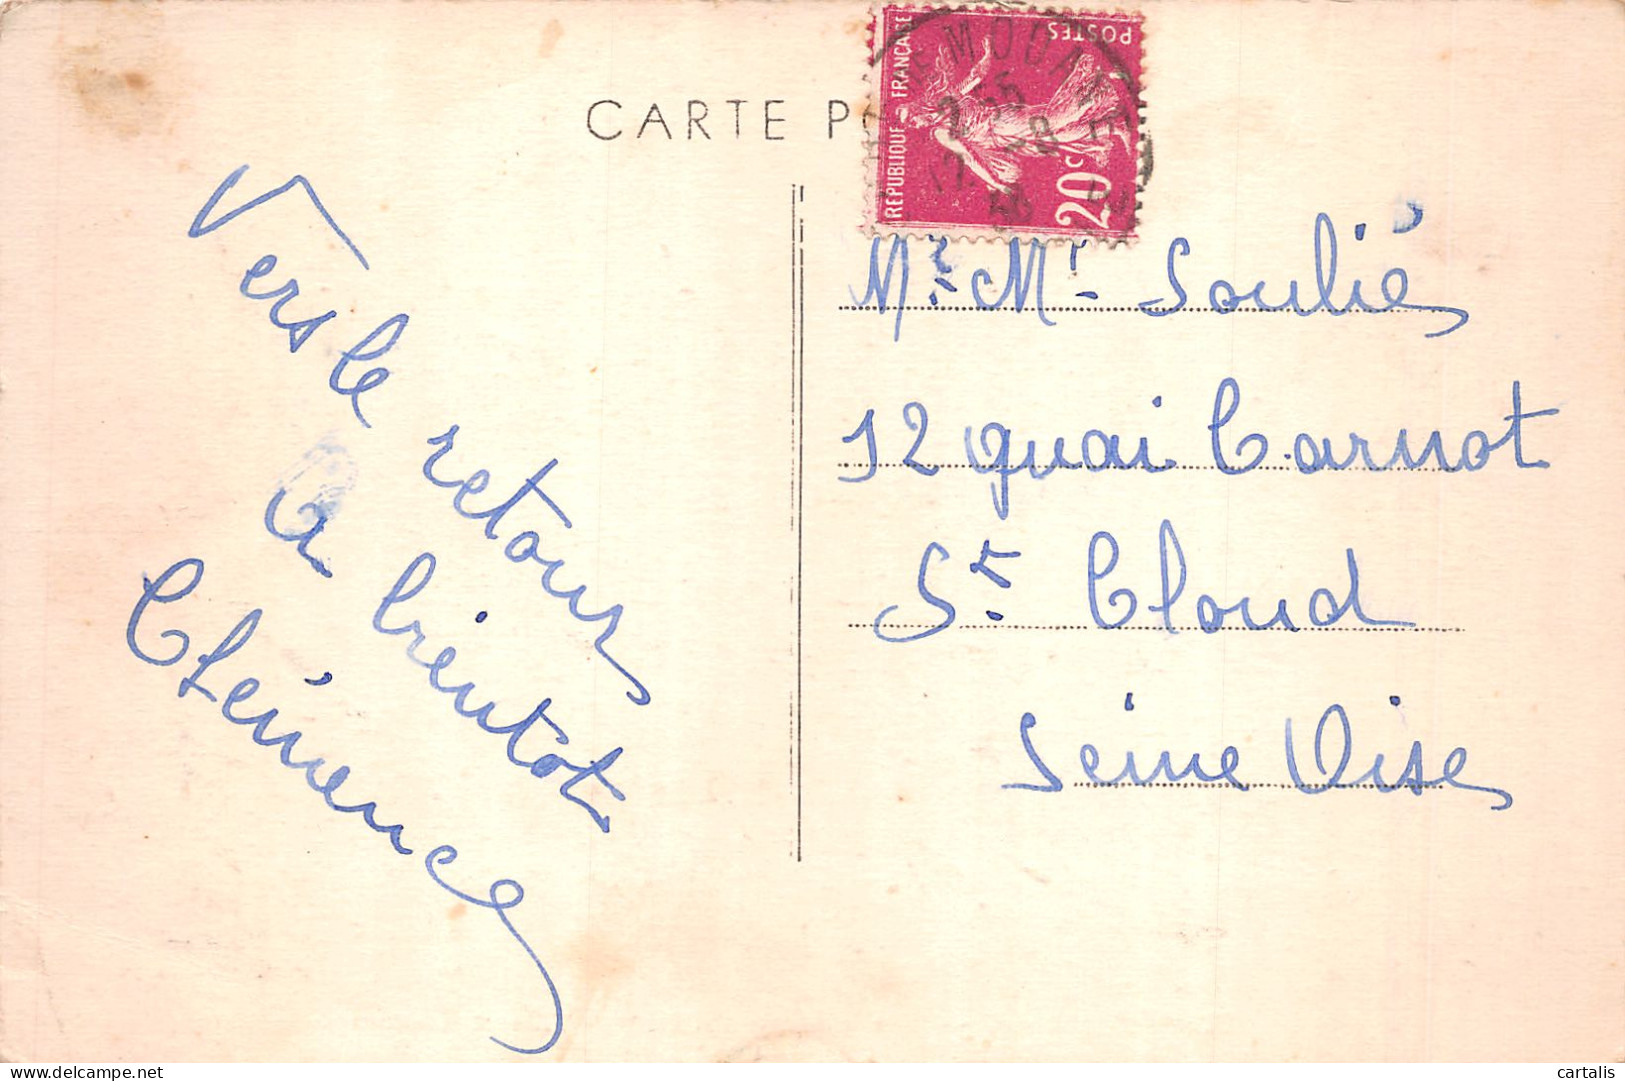 CARTE P
REPUBLIQUE FRANÇAISE
POSTES
20c
MODANE
Vers le retour
a bientot
Clémence
Mr. Mr. Souliés
12 quai Carnot
St. Cloud
Seine Oise
delcampe.net
cartalis